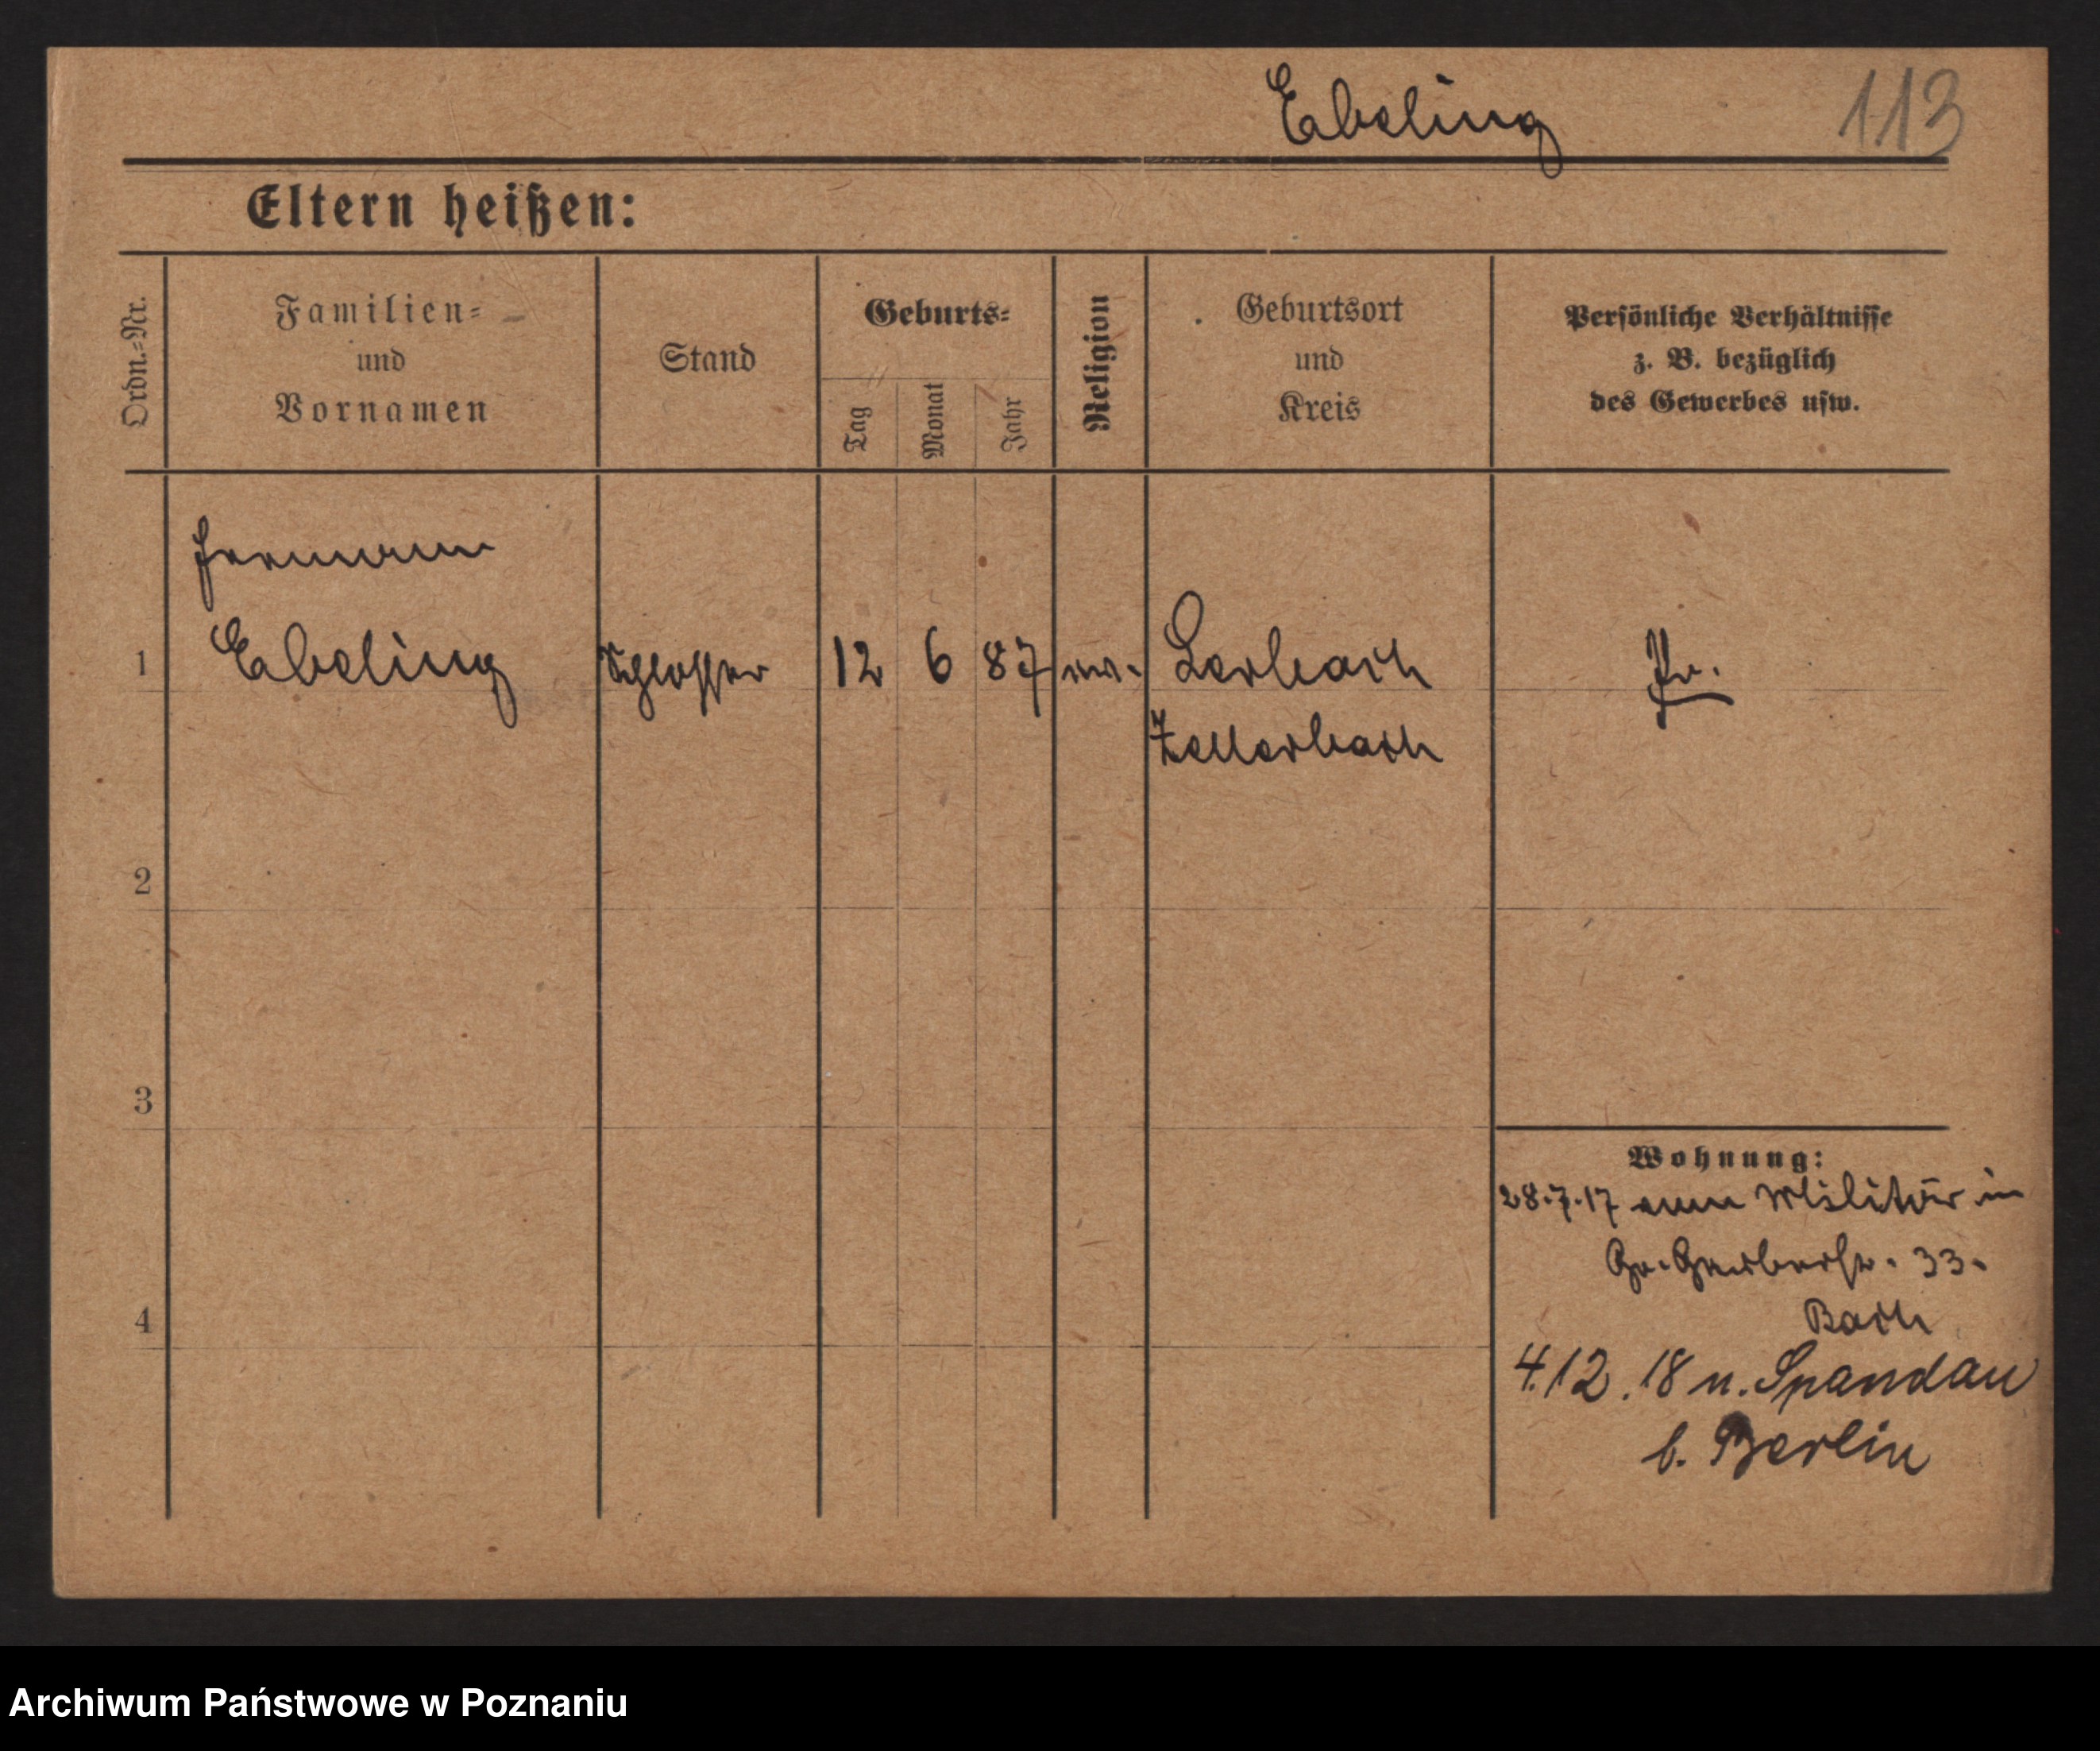 Ebeling 113
Eltern heißen:
Ordn.=Nr.
Familien=
und
Vornamen
Stand
Geburts=
Tag
Monat
Jahr
Religion
Geburtsort
und
Kreis
Persönliche Verhältnisse
z. B. bezüglich
des Gewerbes usw.
Hermann
1 Ebeling Schlosser 12 6 87 ev. Lerbach Pr.
Zellerbach
2
3
4
Wohnung:
28.7.17 vom Militär in
Gr. Gerberstr. 33.
Bach
4.12.18 n. Spandau
b. Berlin
Archiwum Państwowe w Poznaniu